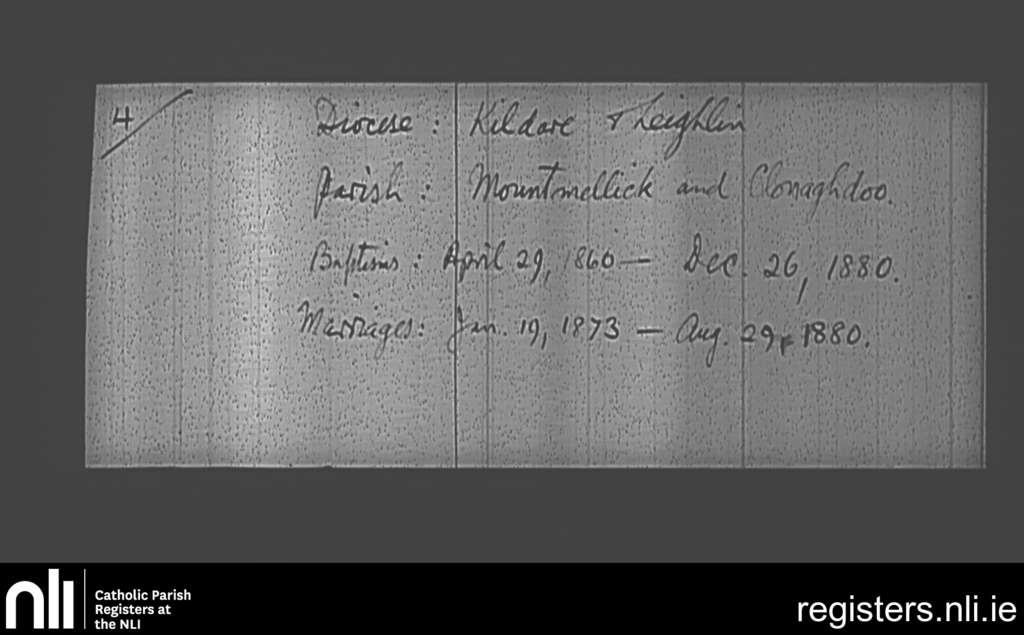 4/
Diocese: Kildare & Leighlin
Parish: Mountmellick and Clonaghdoo.
Baptisms: April 29, 1860 — Dec. 26, 1880.
Marriages: Jan. 19, 1873 — Aug. 29, 1880.
nli
Catholic Parish
Registers at
the NLI
registers.nli.ie